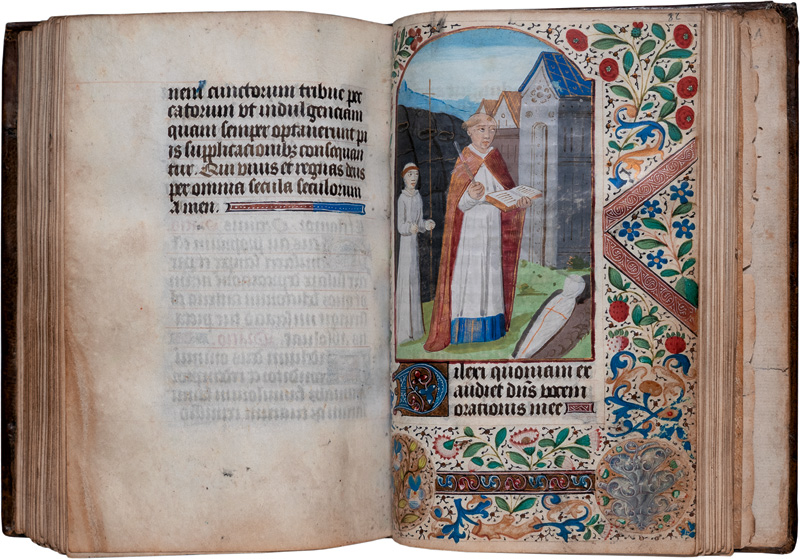 nem cunctorum tribue pec
catorum vt indulgenciam
quam semper optauerunt pi
is supplicacionibz consequan
tur. Qui viuis et regnas deus
per omnia secula seculorum
Amen.
82
Dilexi quoniam ex
audiet dns vocem
orationis mee